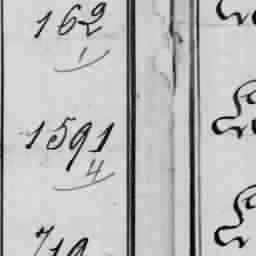 162
1
1591
4
719